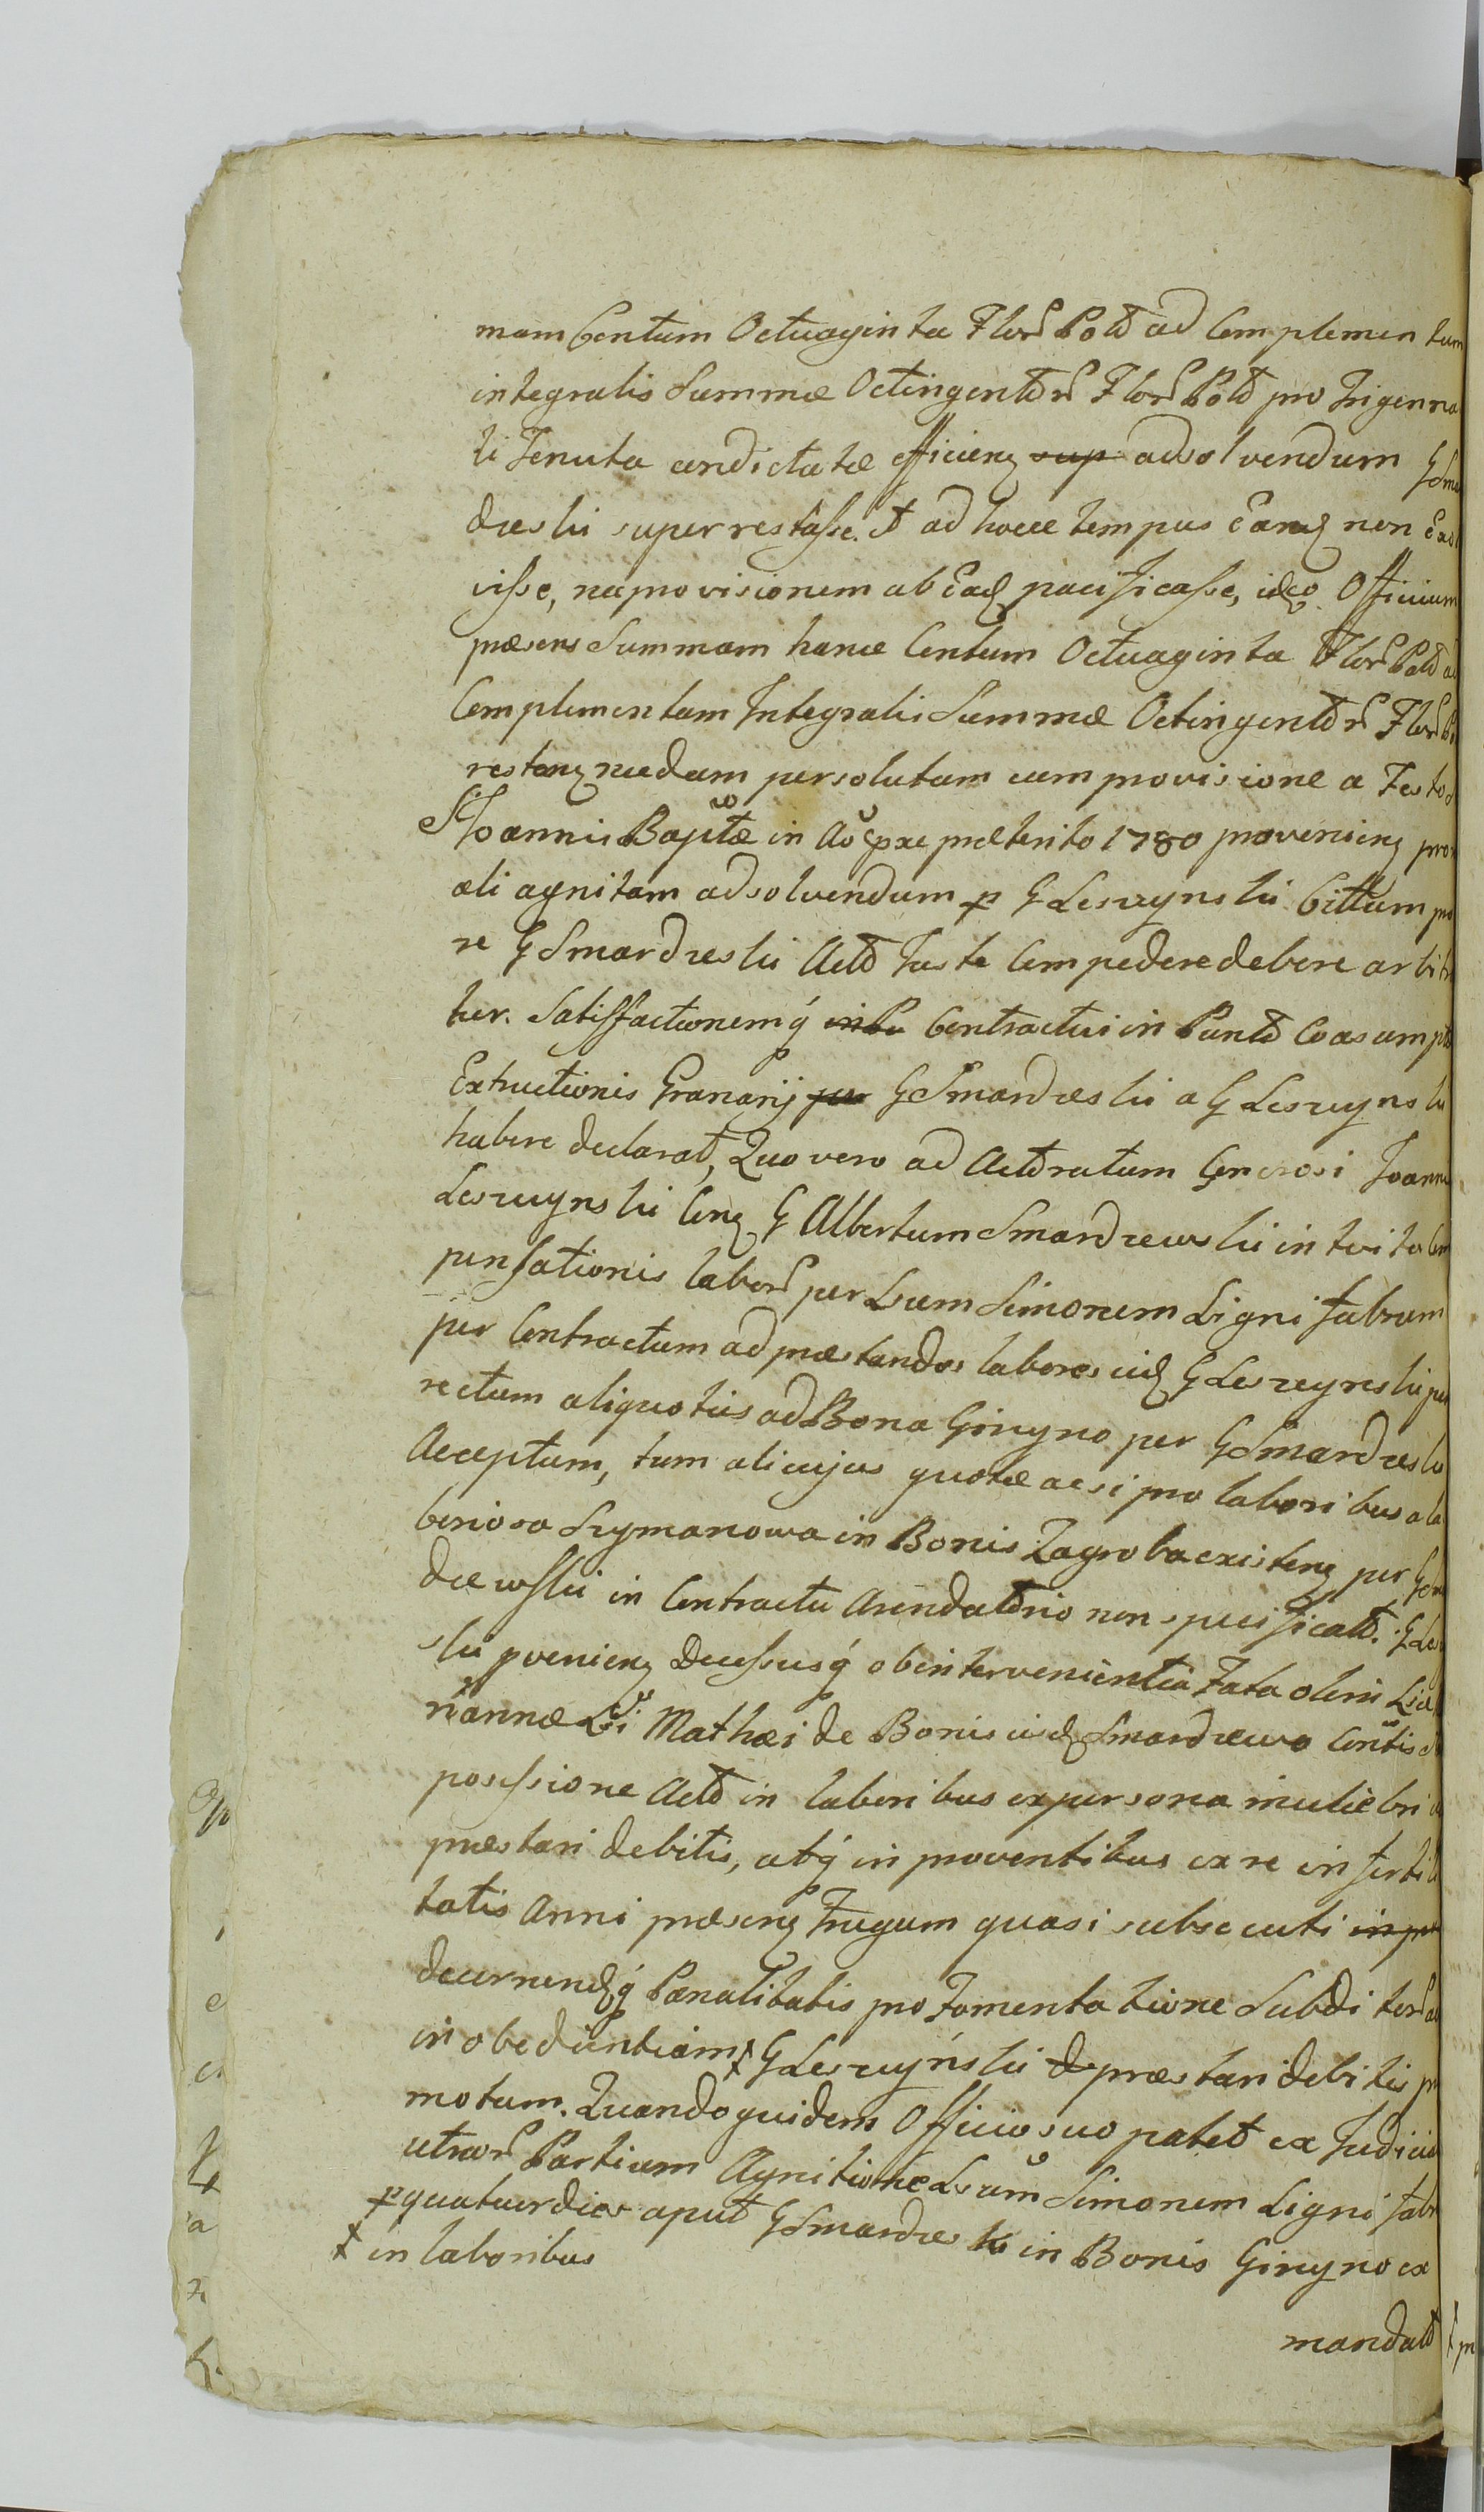 mam Centum Octuaginta Flor Pold ad Complementum
integralis Summæ Octingentor Flor Pold pro Trigenna
li Tenuta condictatæ efficien sup adsolvendum G Smar
dzeski superrestasse. Et ad hocce tempus Eamq non Exol
visse, nec provisionem ab Eadq pacificasse, ideo Officium
præsens Summam hance Centum Octuaginta Flor Pold ad
Complementum Integralis Summæ Octingentor Flor Po
restan necdum persolutam cum provisione a Festo S
S Joannis Baptæ in Ao pxe præterito 1780 provenien pro
æli agnitam adsolvendum p G Leszczynski Cittum pro
re G Smardzeski Actd Juste Compedere debere arbitra
tur. Satisfactionemq in Pu Contractui in Punctd Coasumptd
Extructionis Granarij per G Smardzeski a G Leszczynski
habere declarat, Quo vero ad Actoratum Generosi Joannis
Leszczynski Con G Albertum Smardzewski intuitu Com
pensationis labor per Lsum Simonem Lignifabrum
per Contractum ad præstandos labores eid G Leszczynski per
rectum aliquotius ad Bona Giczyno per G Smardzeski
Acceptum, tum alicujus quotæ acsi pro laboribus a la
boriosa Szymanowa in Bonis Zagroba existen per G Smar
dzewski in Contractu Arendatorio non specificatd. G Lesz
ski pvenien Decessusq ob intervenientia Fata olim Lsæ
riannæ Lsi Mathæi de Bonis iisd Smardzewo Contis ex
possessione Actd in laboribus ex persona muliebri
præstari debitis, atq in proventibus ex re infertili
tatis Anni præsen Frugum quasi subsecuti in pro
decernendq Pœnalitatis pro Fomentatione Subditor ad
inobedientiam ŧ G Leszczyński de præstari debitis pro
motum. Quandoquidem Officio suo patet ex Judicia
utraor Partium Agnitione Lsum Simonem Lignifabr
p quatuor dies aput G Smardzeski in Bonis Giczyno ex
ŧ in laboribus
mandatd